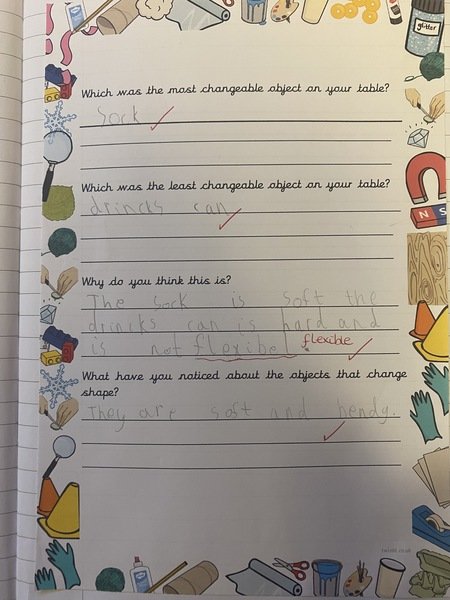 glitter
Which was the most changeable object on your table?
Sock
Which was the least changeable object on your table?
drincks can
Why do you think this is?
The sock is soft the
drincks can is hard and
is not flexibel. flexible
What have you noticed about the objects that change
shape?
They are soft and bendy.
N S
twinkl.co.uk